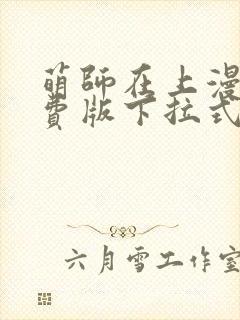 萌师在上漫
费版下拉式
六月雪工作室